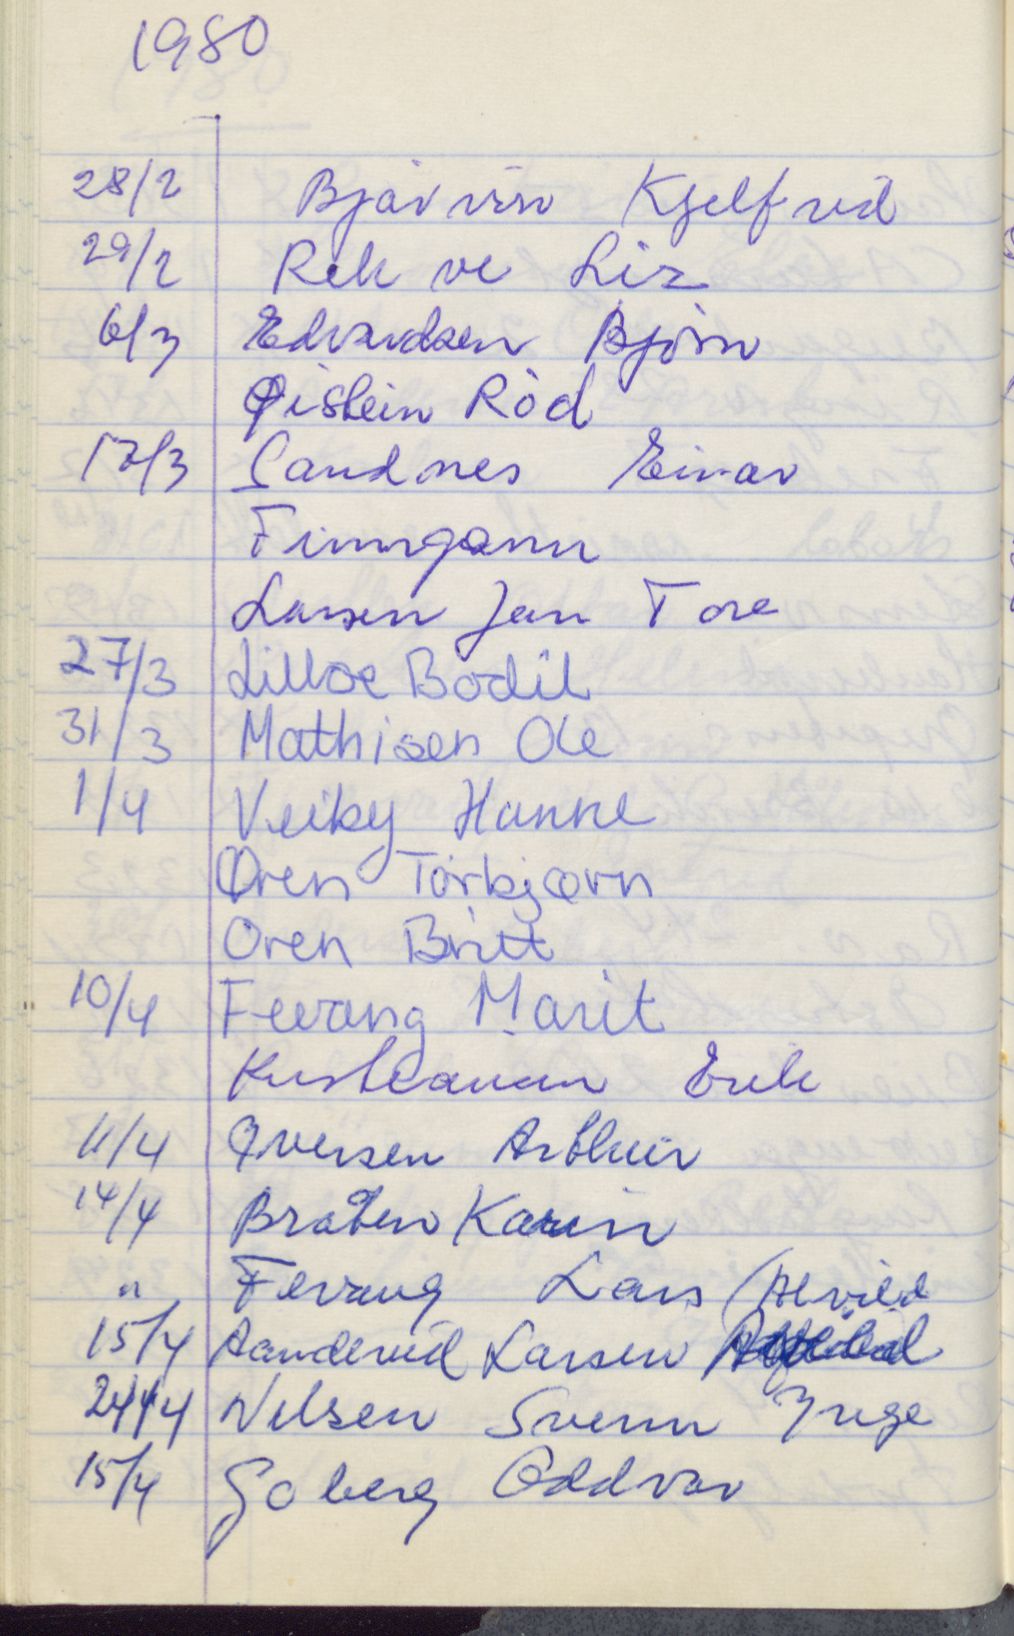 1980
28/2 Bjavnin Kjelfrid
29/2 Rekve Liz
6/3 Edvardsen Bjørn
Øistein Röd
17/3 Sandnes Einar
Larsen Jan Tore
27/3 Lilloe Bodil
31/3 Mathisen Ole
1/4 Veiby Hanne
Øren Torbjørn
Oren Britt
10/4 Fevang Marit
Kristiansen Erik
11/4 Iversen Arthur
14/4 Bråten Karin
" Fevang Lars
15/4 Aanderud Larsen
24/4 Nilsen Svenn Inge
15/4 Goberg Oddvar